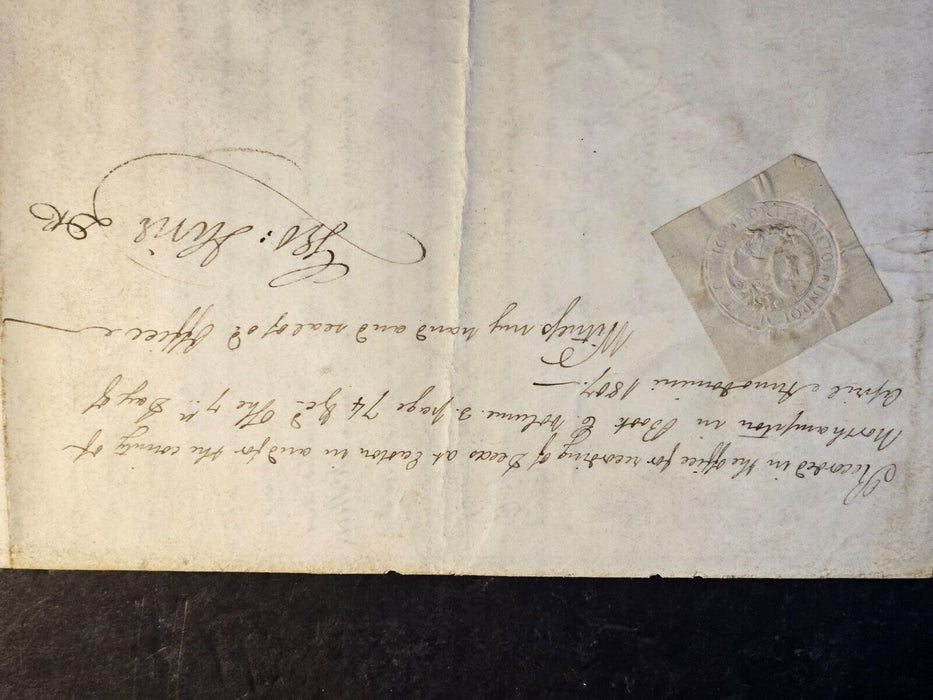 Recorded in the office for recording of Deeds at Easton in and for the county of
Northampton in Book C. Volume 3. page 74 &c. The 7th Day of
April Annodomini 1807.
Witness my hand and seal of sd Office
Geo:
NORTHAMPTON